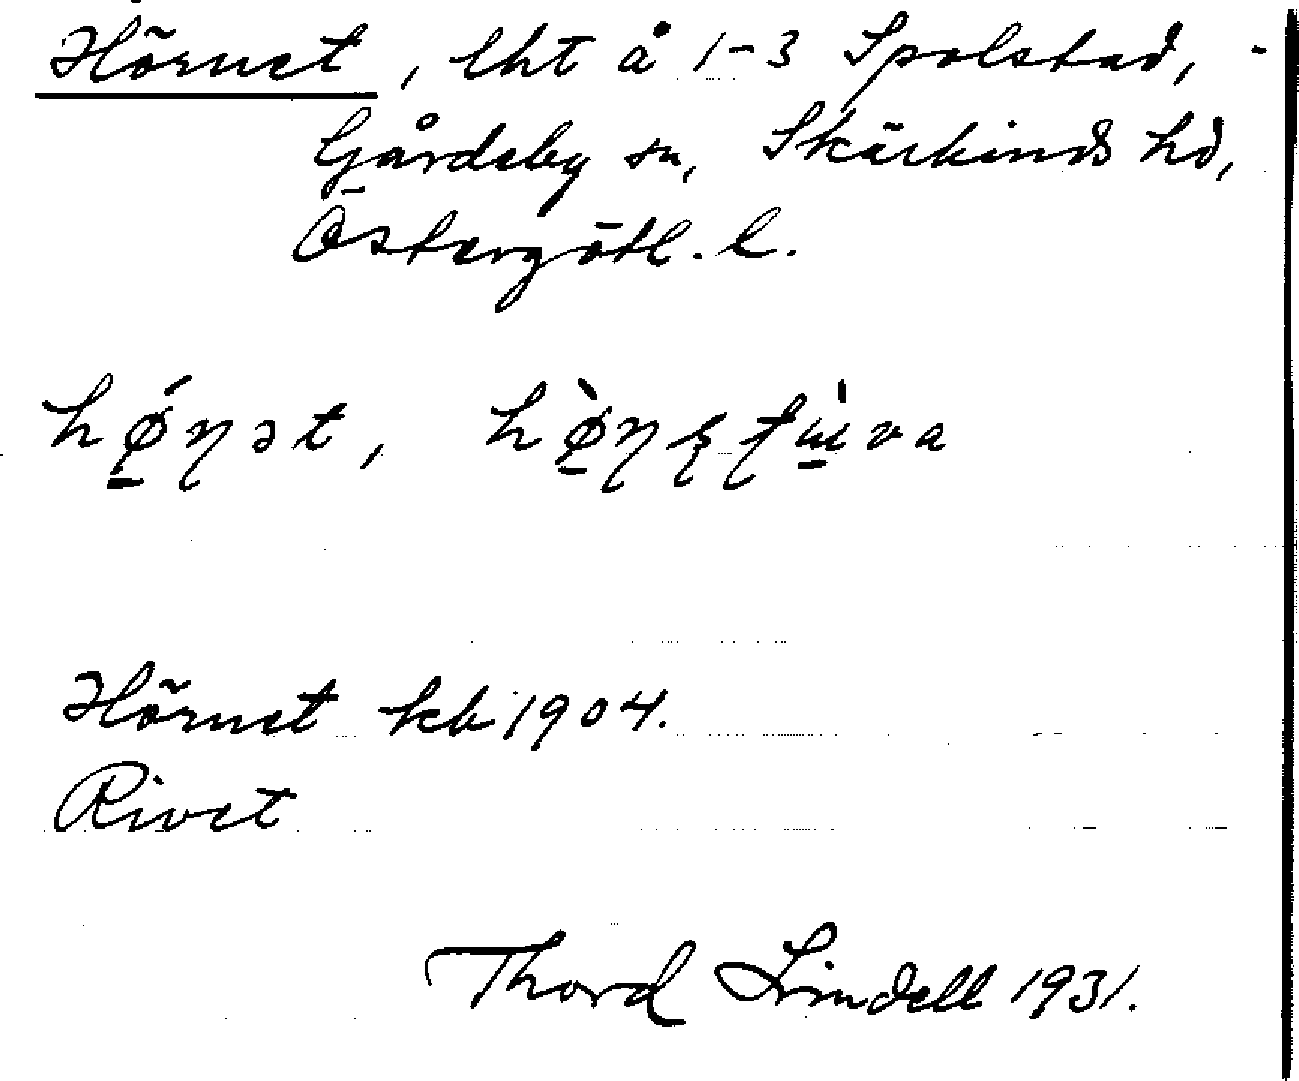 Hörnet, lht å 1-3 Spolstad, -
Gårdeby sn, Skärkinds hd,
Östergötl. l.
Hörnet kb 1904.
Rivet
Thord Lindell 1931.